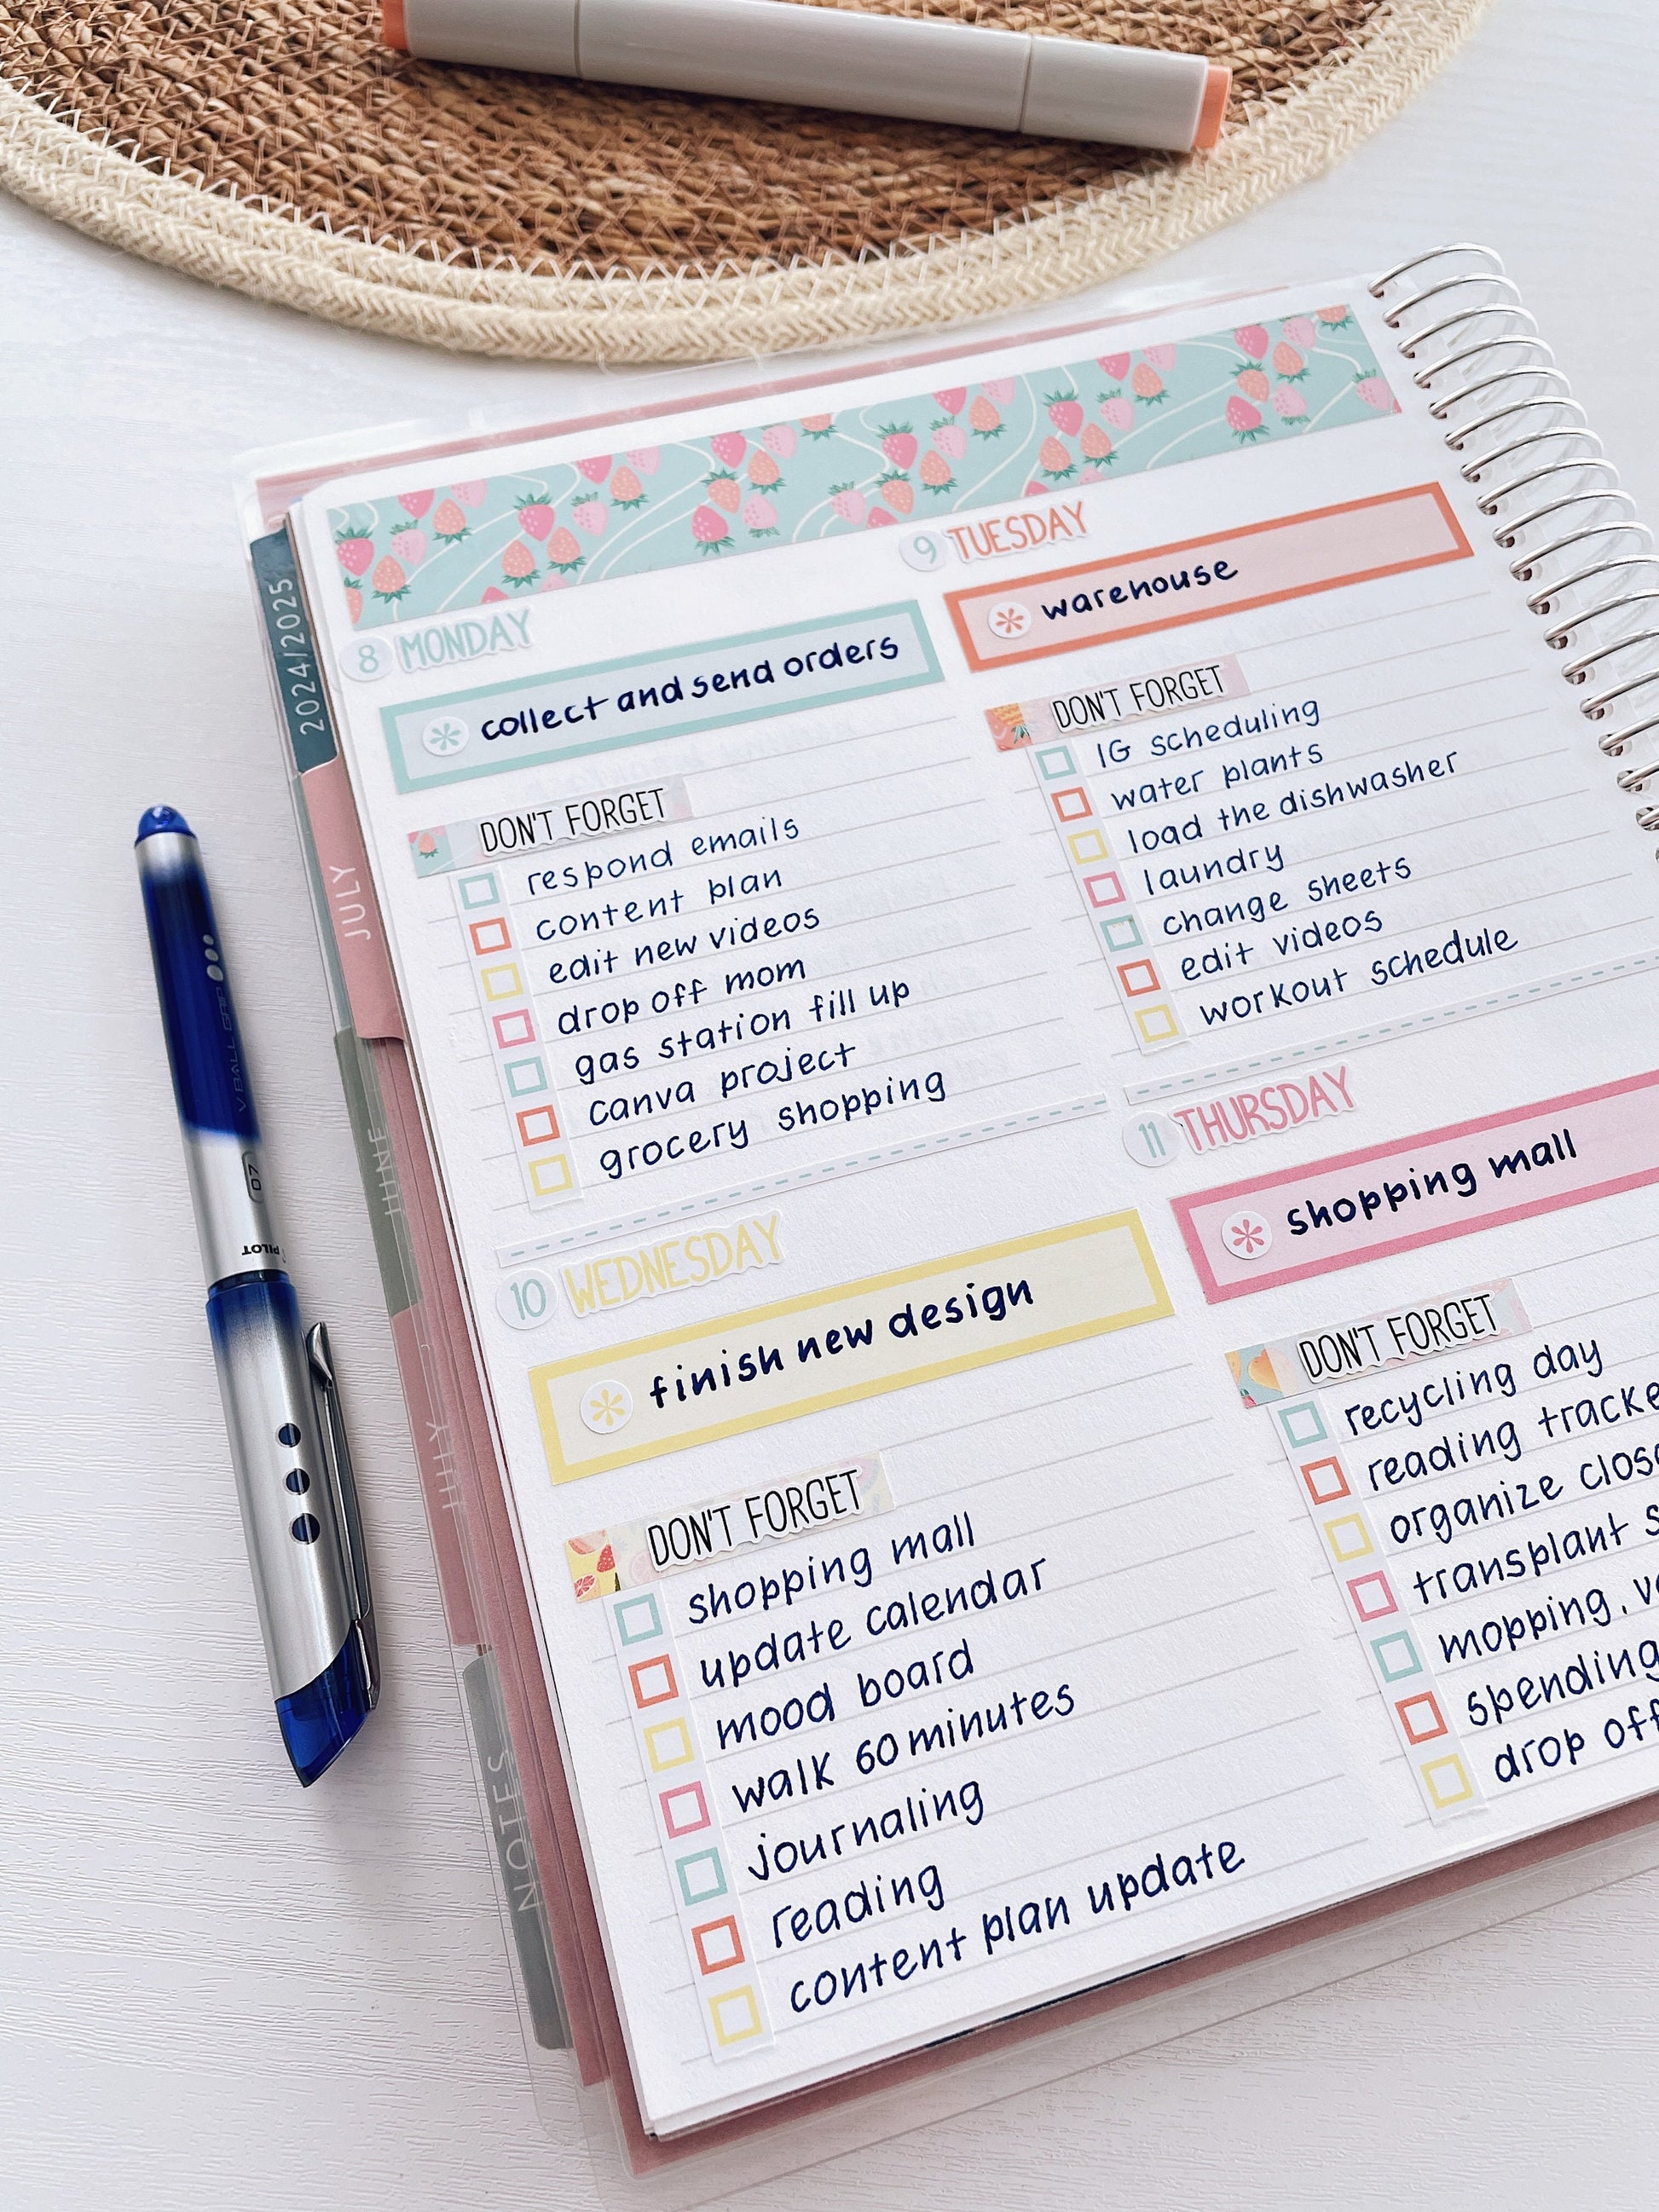 2024/2025
JULY
JUNE
JULY
NOTES
V BALL GRIP
07
PILOT
8 MONDAY
collect and send orders
DON'T FORGET
respond emails
content plan
edit new videos
drop off mom
gas station fill up
canva project
grocery shopping
9 TUESDAY
warehouse
DON'T FORGET
IG scheduling
water plants
load the dishwasher
laundry
change sheets
edit videos
workout schedule
10 WEDNESDAY
finish new design
DON'T FORGET
shopping mall
update calendar
mood board
walk 60 minutes
journaling
reading
content plan update
11 THURSDAY
shopping mall
DON'T FORGET
recycling day
reading
organize
transplant
mopping,
spending
drop off